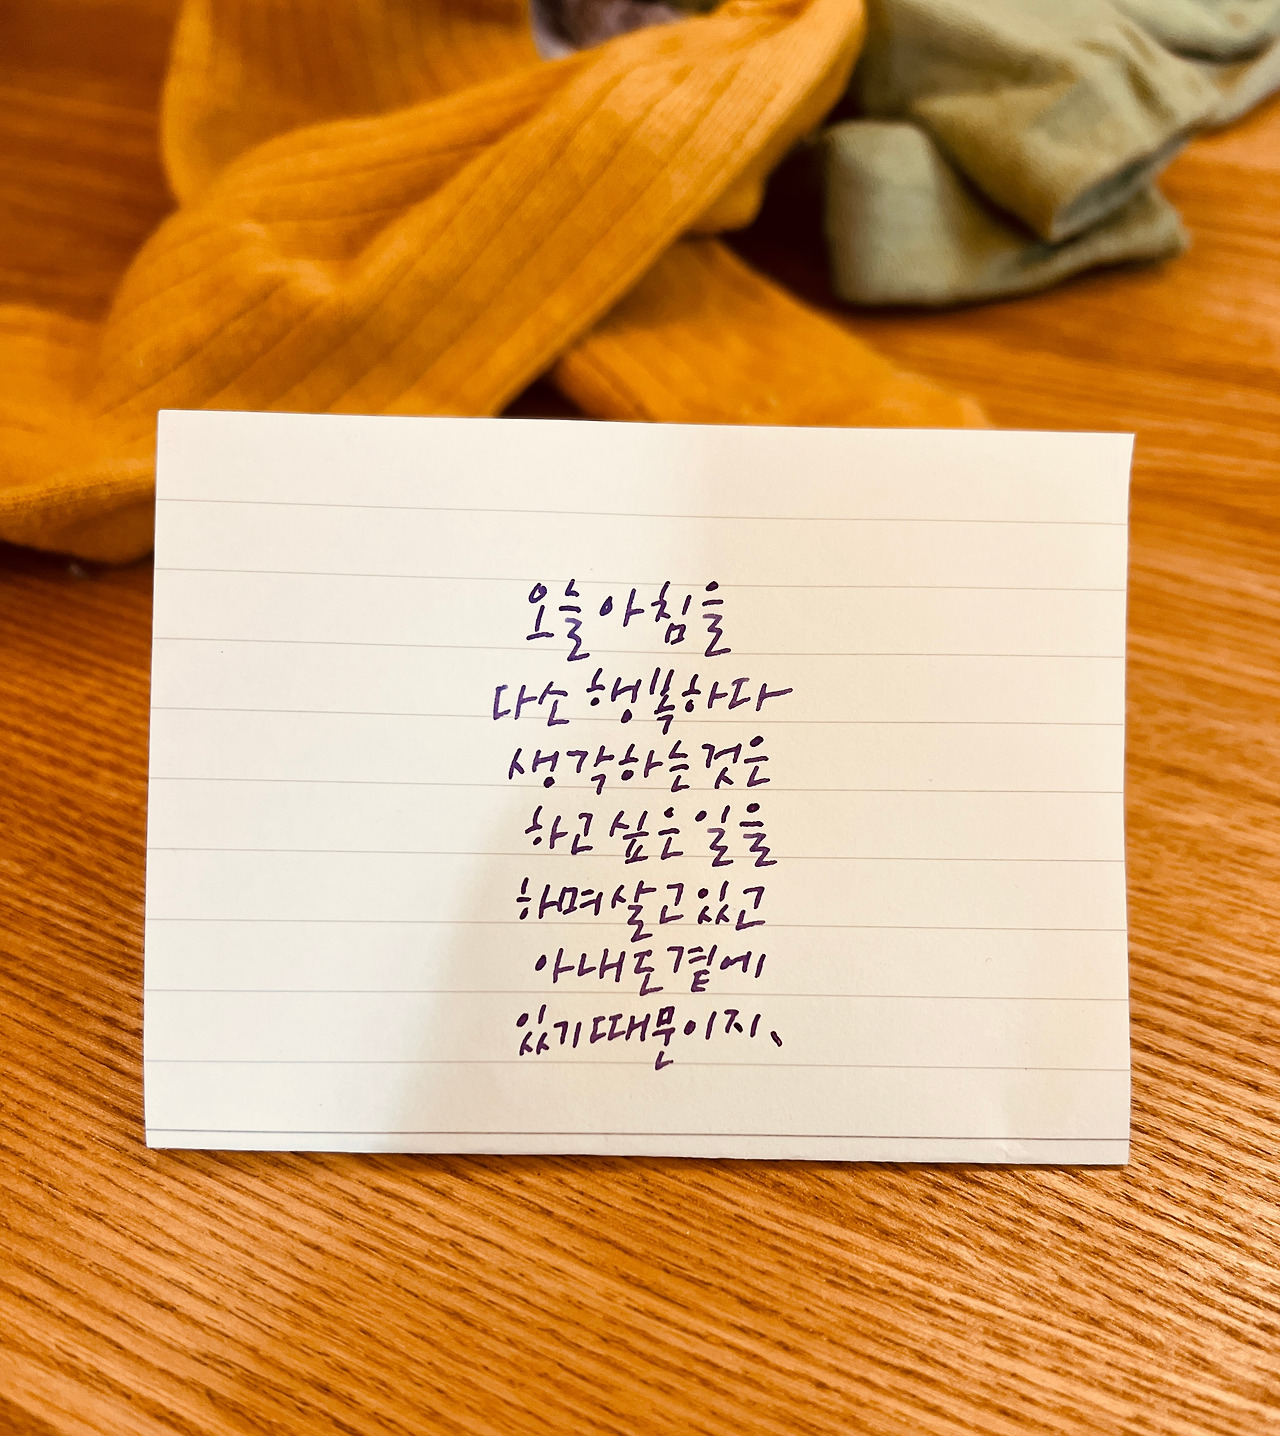 오늘 아침을
다소 행복하다
생각하는것은
하고 싶은 일을
하며 살고 있고
아내도 곁에
있기 때문이지、